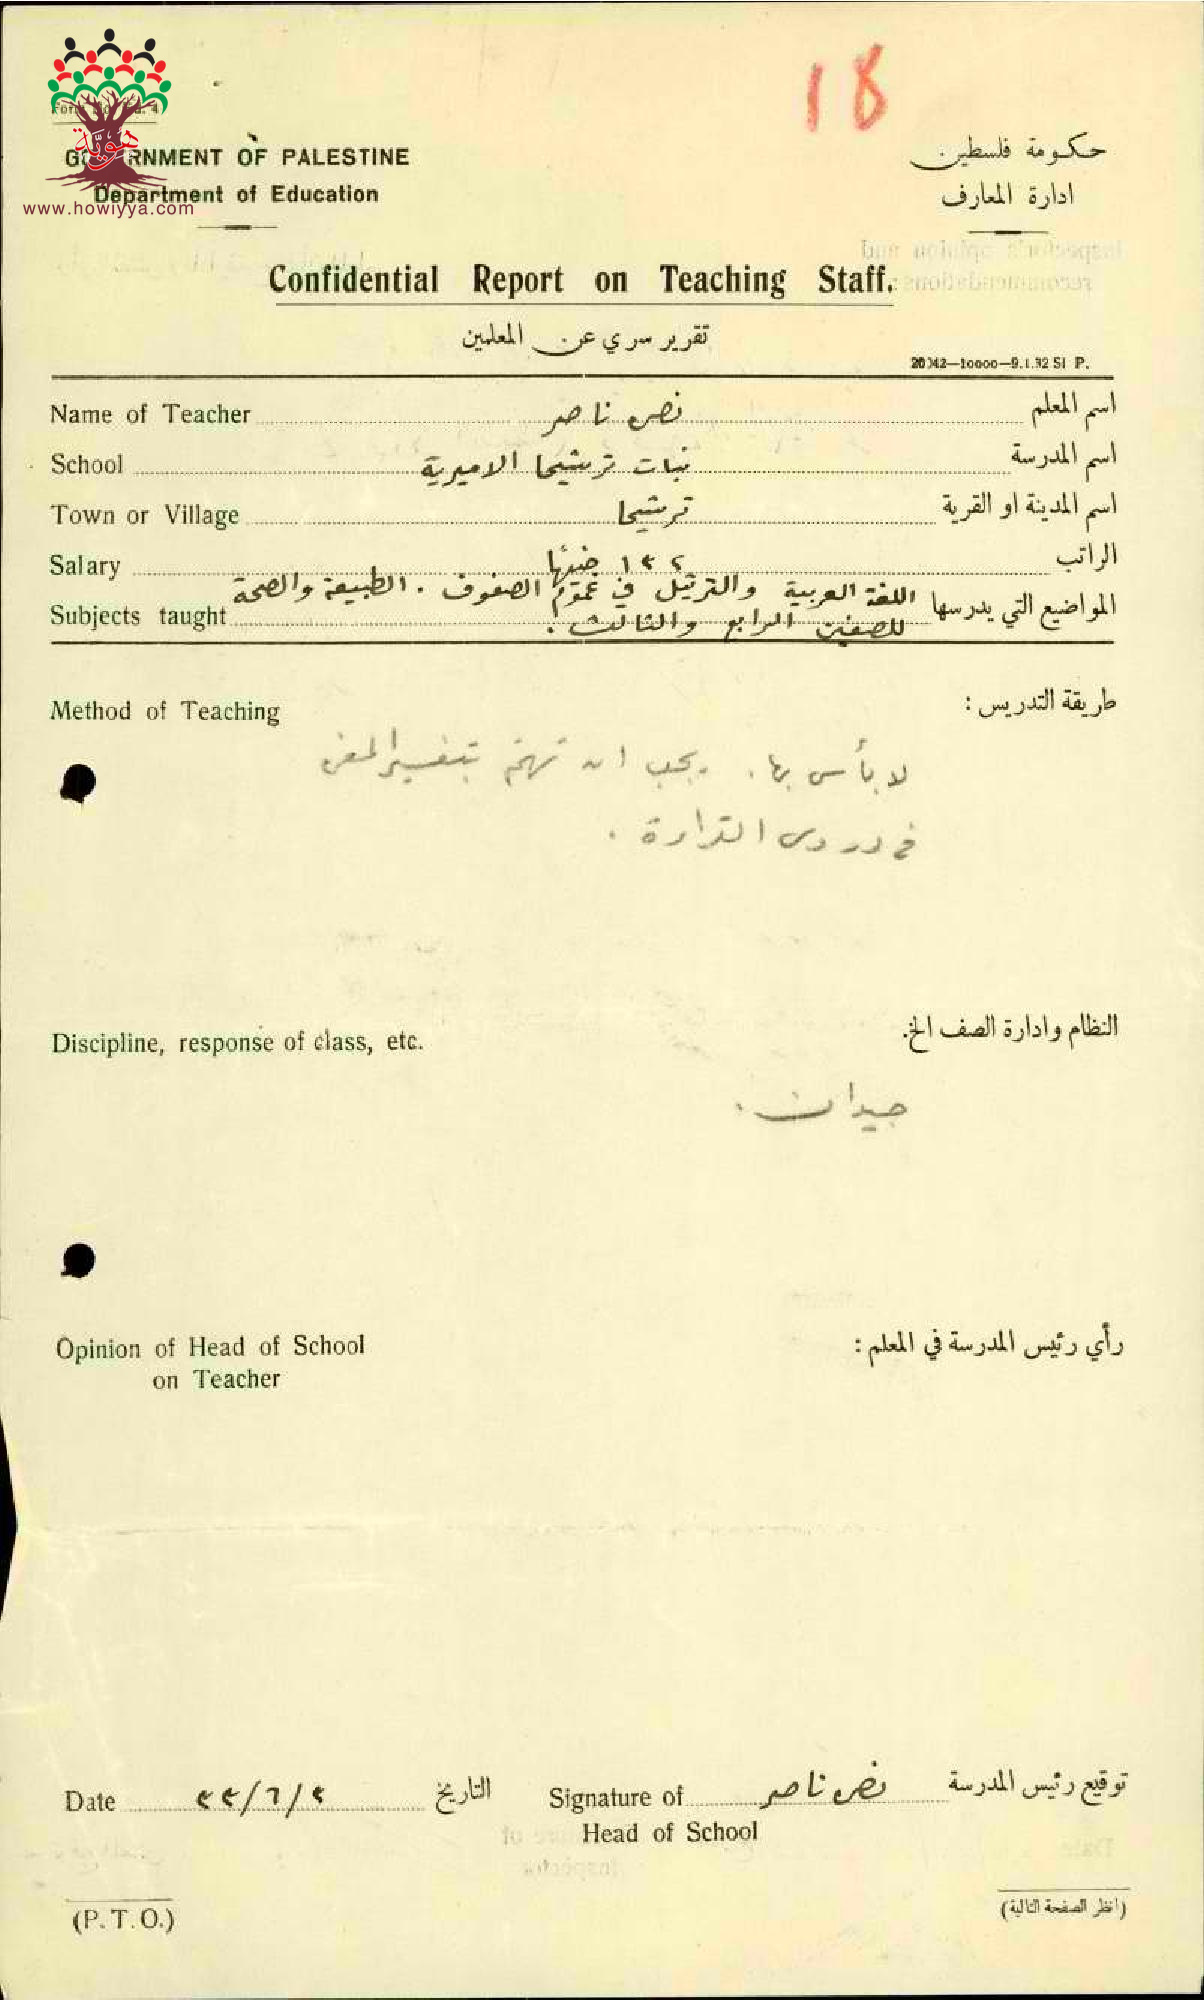 18
Form No. Ed. 4
هوية
GOVERNMENT OF PALESTINE
حكومة فلسطين
Department of Education
ادارة المعارف
www.howiyya.com
Confidential Report on Teaching Staff.
تقرير سري عن المعلمين
20042—10000—9.1.32 SI P.
Name of Teacher نص ناصر اسم المعلم
School بنات ترشيحا الاميرية اسم المدرسة
Town or Village ترشيحا اسم المدينة او القرية
Salary جنيها الراتب
اللغة العربية والترتيل في عموم الصفوف . الطبيعة والصحة
Subjects taught للصفين الرابع والثالث . المواضيع التي يدرسها
Method of Teaching طريقة التدريس :
لا بأس بها . يجب ان تهتم بتفسير المعنى
في دروس القراءة .
Discipline, response of class, etc. النظام وادارة الصف الخ.
جيدان .
Opinion of Head of School رأي رئيس المدرسة في المعلم :
on Teacher
Date التاريخ Signature of نص ناصر توقيع رئيس المدرسة
Head of School
(P. T. O.) (انظر الصفحة التالية)